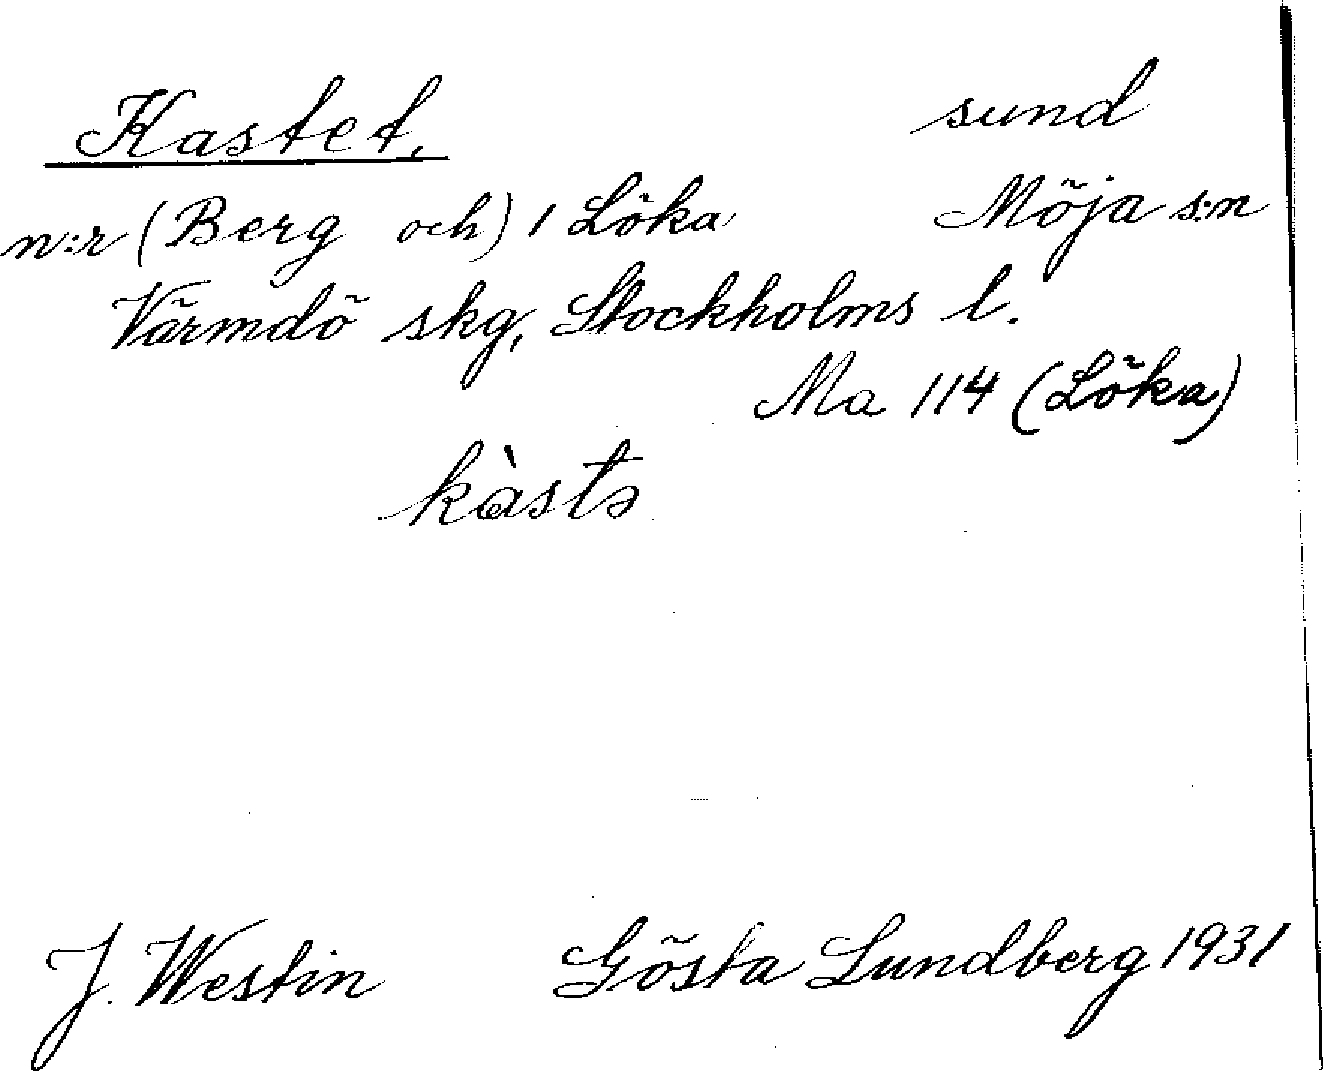 Kastet, sund
n:r (Berg och) 1 Löka Möja s:n
Värmdö skg, Stockholms l.
Ma 114 (Löka)
kàstə
J. Westin Gösta Lundberg 1931